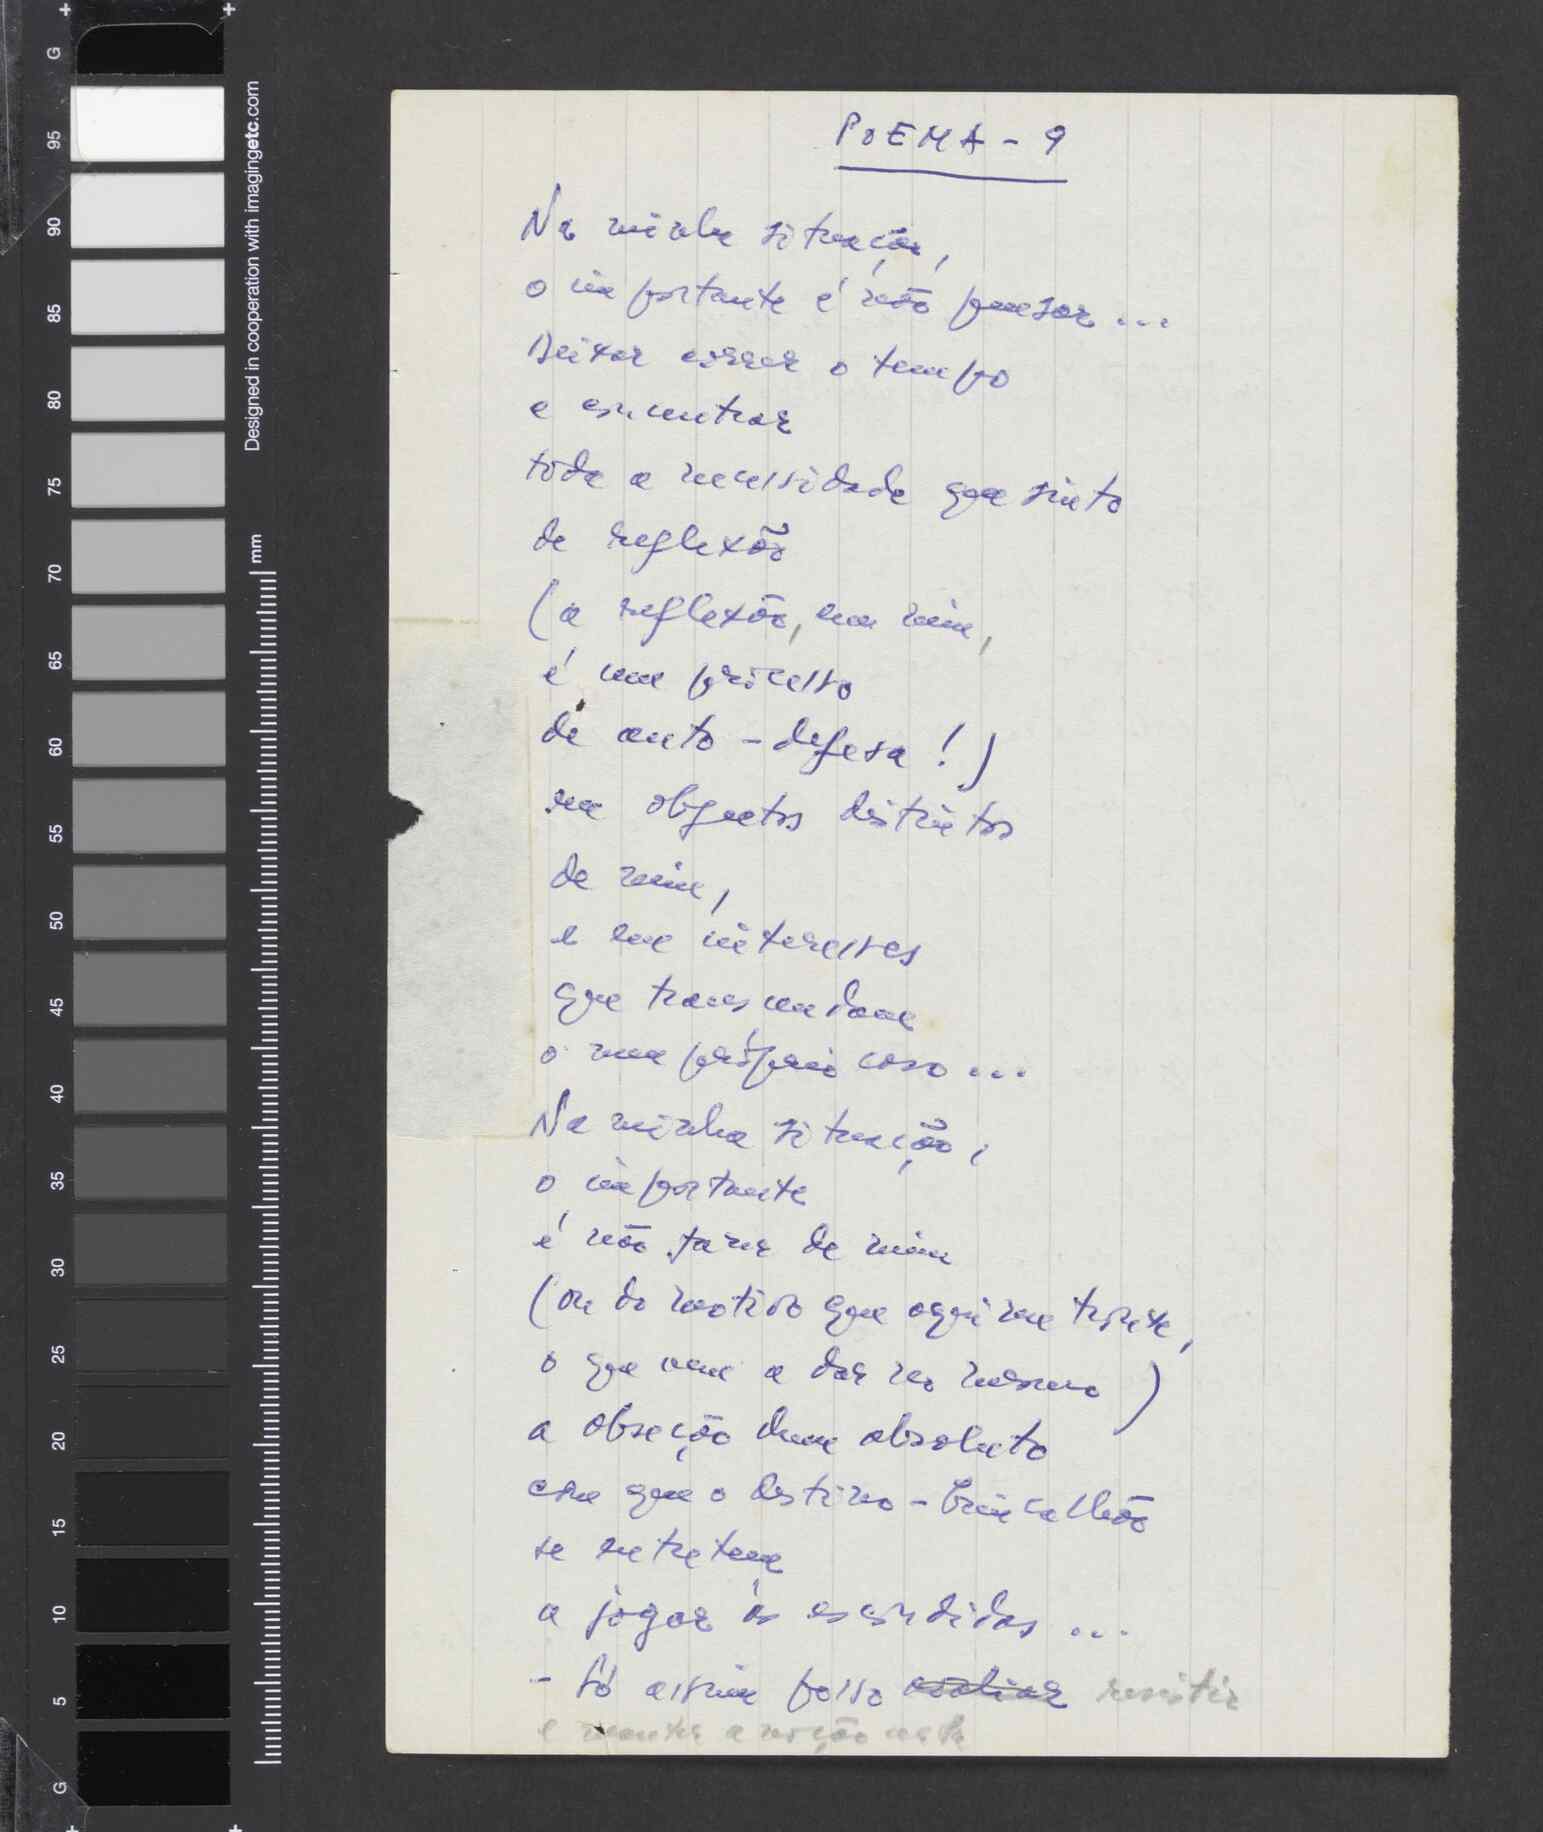 G
95
90
85
80
75
70
65
60
55
50
45
40
35
30
25
20
15
10
5
G
Designed in cooperation with imagingetc.com
mm
POEMA - 9
Na minha situação,
o importante é não pensar...
Deixar correr o tempo
e concentrar
toda a necessidade que sinto
de reflexão
(a reflexão, em mim,
é um processo
de auto-defesa!)
em objectos distintos
de mim,
e em interesses
que transcendam
o meu próprio caso...
Na minha situação,
o importante
é não fazer de mim
(ou do motivo que aqui me trouxe,
o que vem a dar no mesmo)
a obseção dum absoluto
com que o destino-brincalhão
se entretem
a jogar às escondidas...
- Só assim posso avaliar resistir
e manter a noção